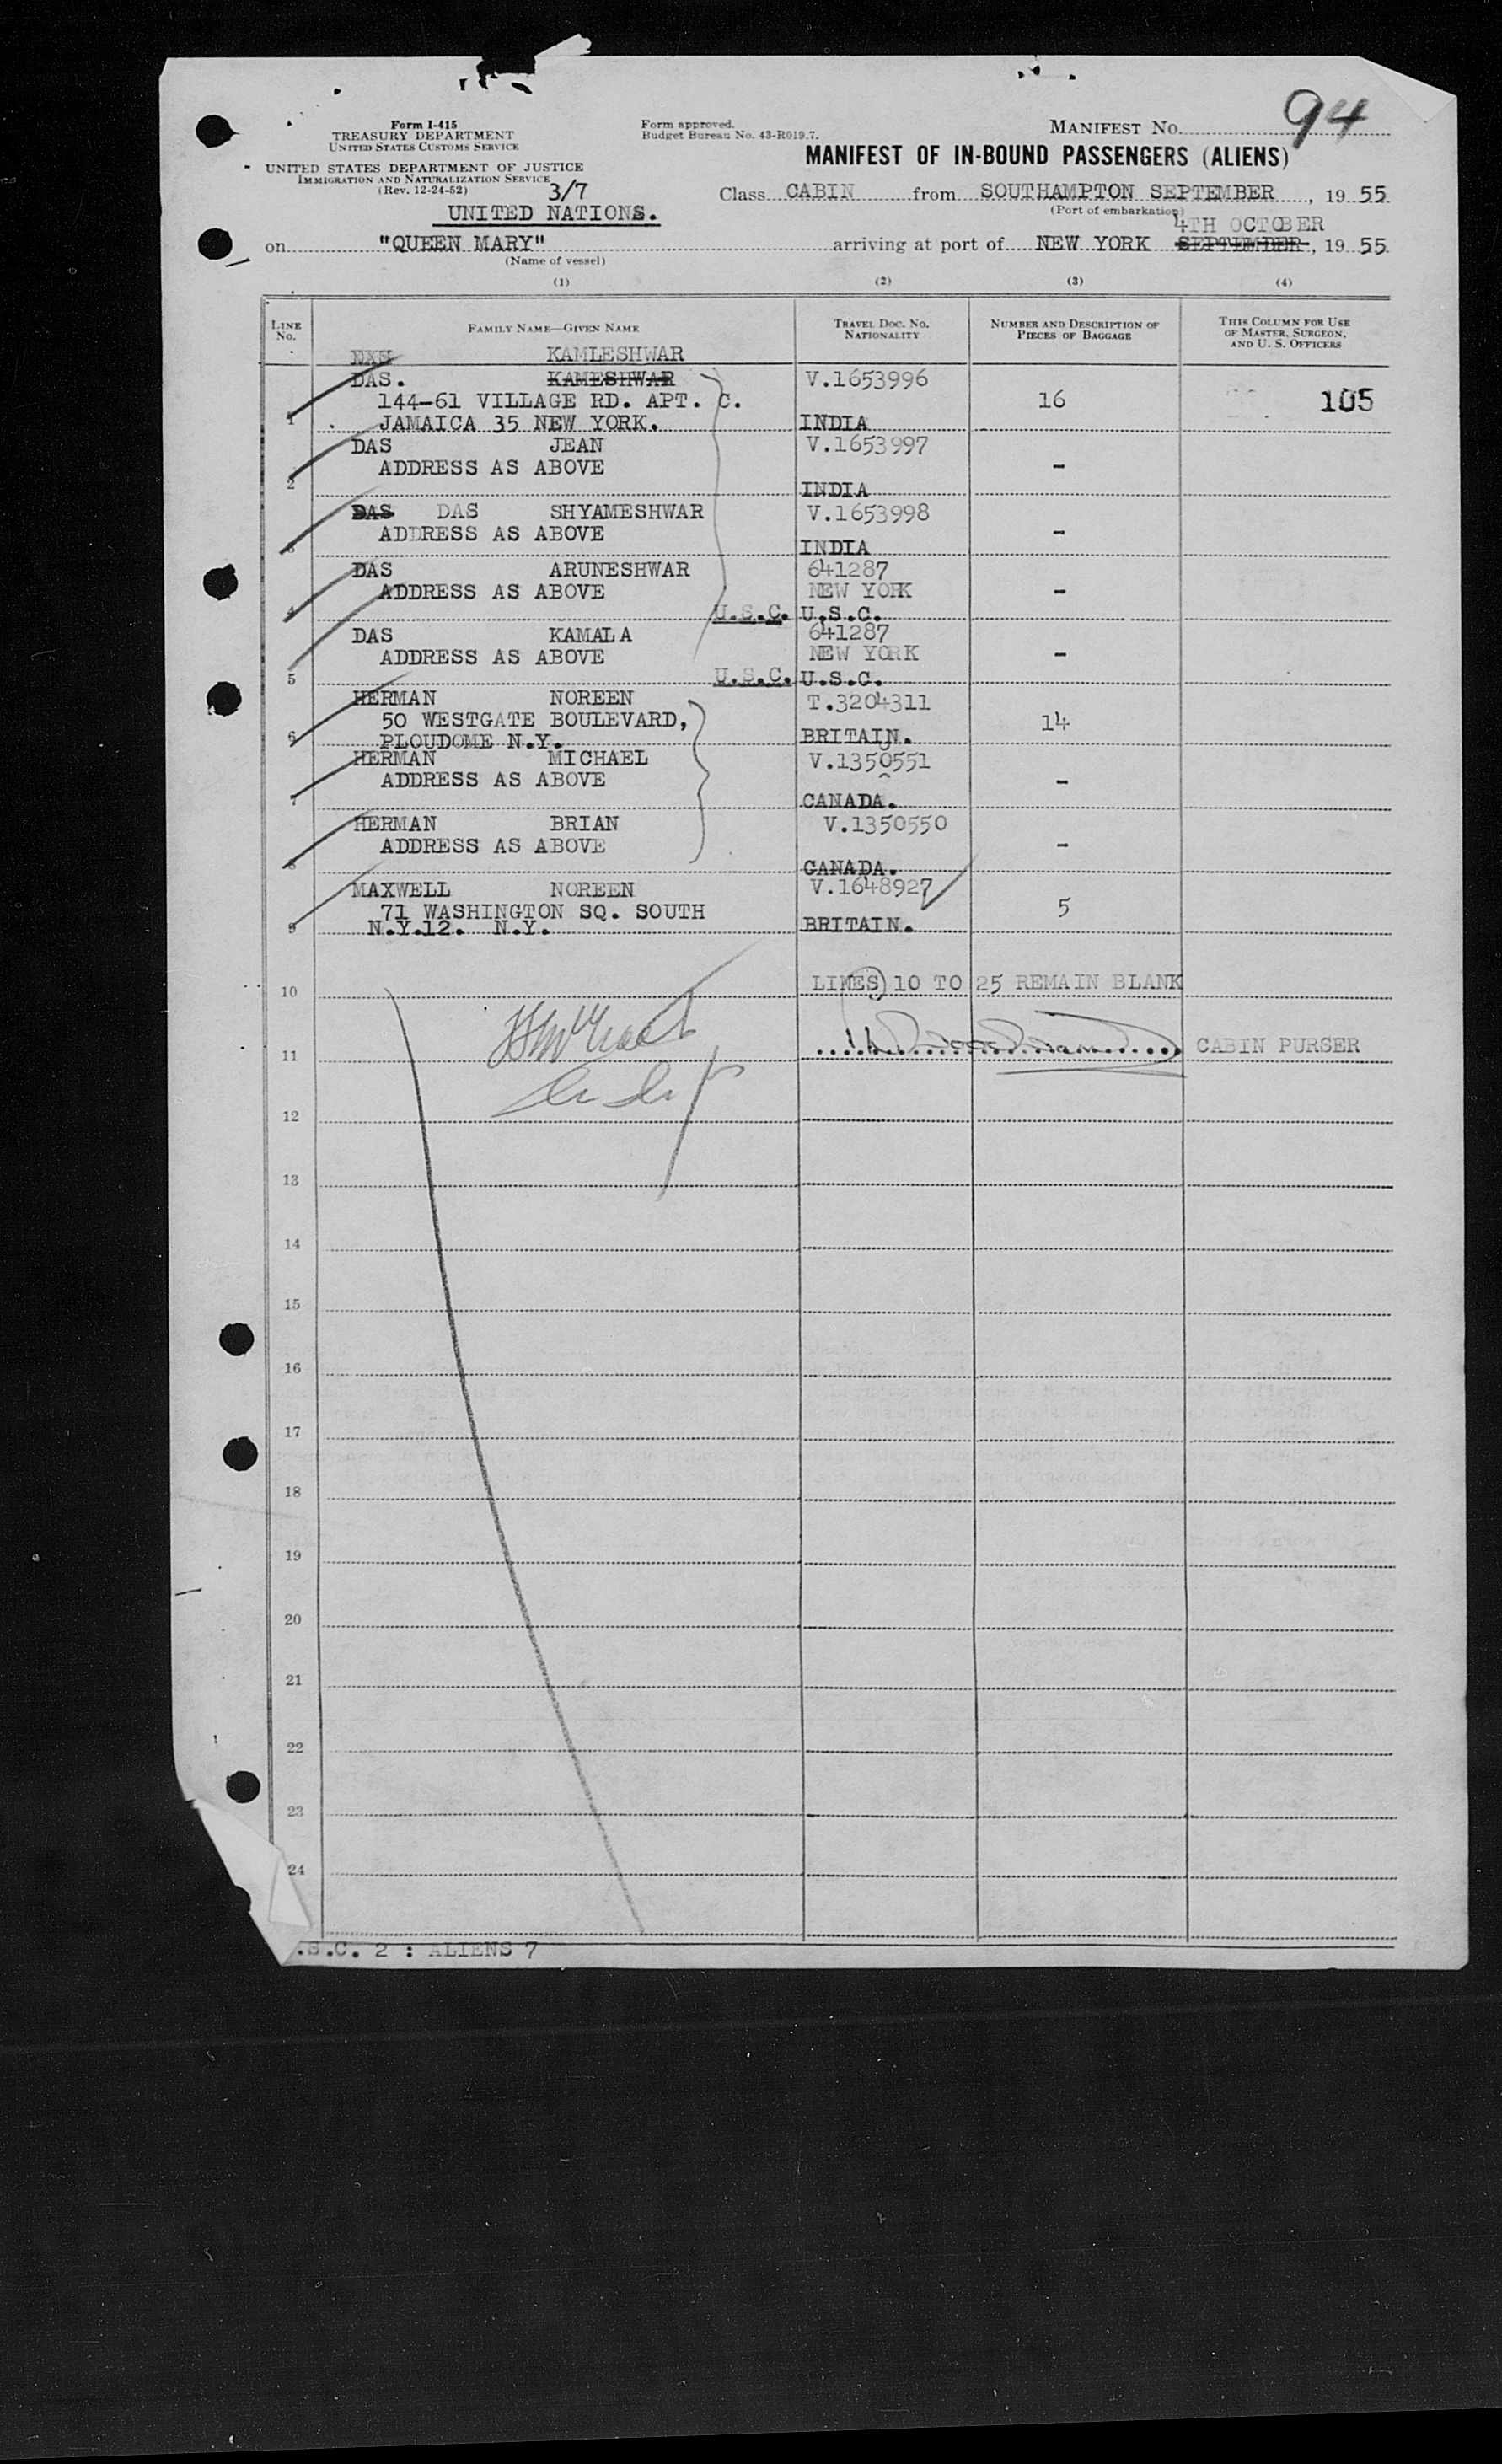 94
Form I-415
TREASURY DEPARTMENT
UNITED STATES CUSTOMS SERVICE
UNITED STATES DEPARTMENT OF JUSTICE
IMMIGRATION AND NATURALIZATION SERVICE
(Rev. 12-24-52)
3/7
UNITED NATIONS.
Form approved.
Budget Bureau No. 43-R019.7.
MANIFEST No.
MANIFEST OF IN-BOUND PASSENGERS (ALIENS)
Class CABIN from SOUTHAMPTON SEPTEMBER, 19 55
(Port of embarkation)
4TH OCTOBER
on "QUEEN MARY" arriving at port of NEW YORK SEPTEMBER, 19 55
(Name of vessel)
(1) (2) (3) (4)
LINE No. FAMILY NAME—GIVEN NAME TRAVEL DOC. NO. NATIONALITY NUMBER AND DESCRIPTION OF PIECES OF BAGGAGE THIS COLUMN FOR USE OF MASTER, SURGEON, AND U. S. OFFICERS
KAMLESHWAR
DAS. KAMESHWAR V.1653996
144-61 VILLAGE RD. APT. C. 16 105
1 JAMAICA 35 NEW YORK. INDIA
DAS JEAN V.1653997
ADDRESS AS ABOVE -
2 INDIA
DAS DAS SHYAMESHWAR V.1653998
ADDRESS AS ABOVE -
3 INDIA
DAS ARUNESHWAR 641287
ADDRESS AS ABOVE NEW YORK -
4 U.S.C. U.S.C.
DAS KAMALA 641287
ADDRESS AS ABOVE NEW YORK -
5 U.S.C. U.S.C.
HERMAN NOREEN T.3204311
50 WESTGATE BOULEVARD, 14
6 PLOUDOME N.Y. BRITAIN.
HERMAN MICHAEL V.1350551
ADDRESS AS ABOVE -
7 CANADA.
HERMAN BRIAN V.1350550
ADDRESS AS ABOVE -
8 CANADA.
MAXWELL NOREEN V.1648927
71 WASHINGTON SQ. SOUTH 5
9 N.Y.12. N.Y. BRITAIN.
10 LINES 10 TO 25 REMAIN BLANK
11 CABIN PURSER
12
13
14
15
16
17
18
19
20
21
22
23
24
.S.C. 2 : ALIENS 7